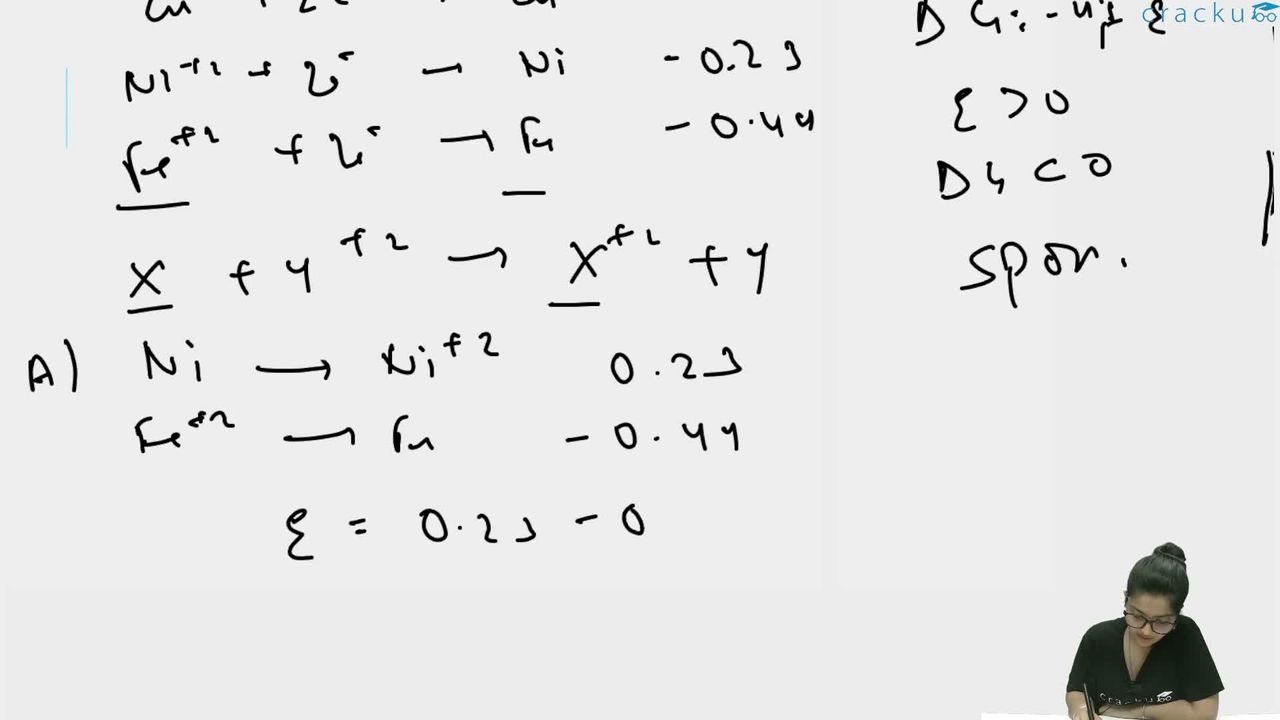 Ni+2 + 2e- → Ni - 0.23
Fe+2 + 2e- → Fe - 0.44
X + Y+2 → X+2 + Y
A) Ni → Ni+2 0.23
Fe+2 → Fe - 0.44
ε = 0.23 - 0
cracku
ε > 0
DG < 0
spon.
cracku